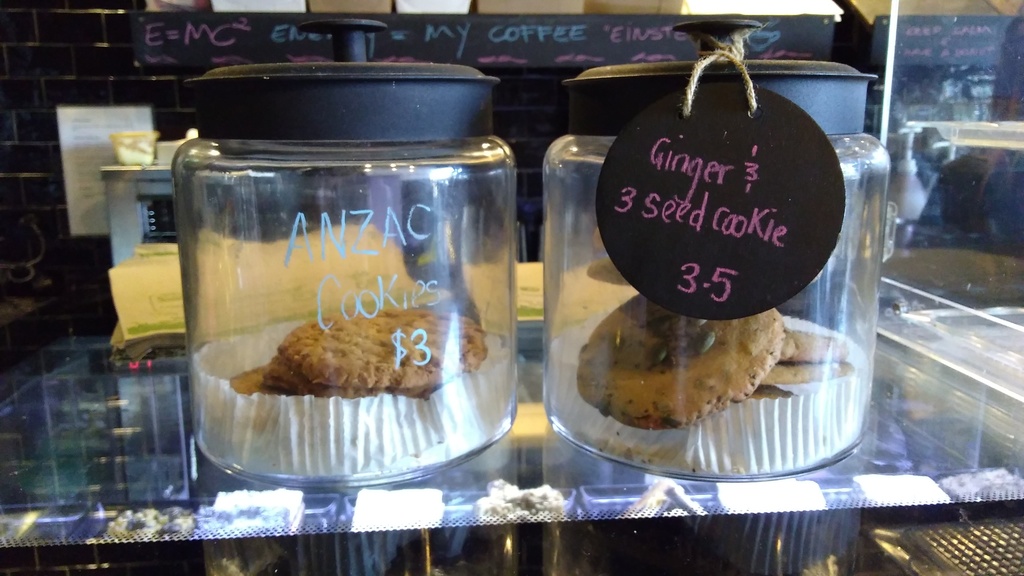 E=MC² ENERGY = MY COFFEE "EINSTE
ANZAC
Cookies
$3
Ginger &
3 seed cookie
3-5
KEEP CALM